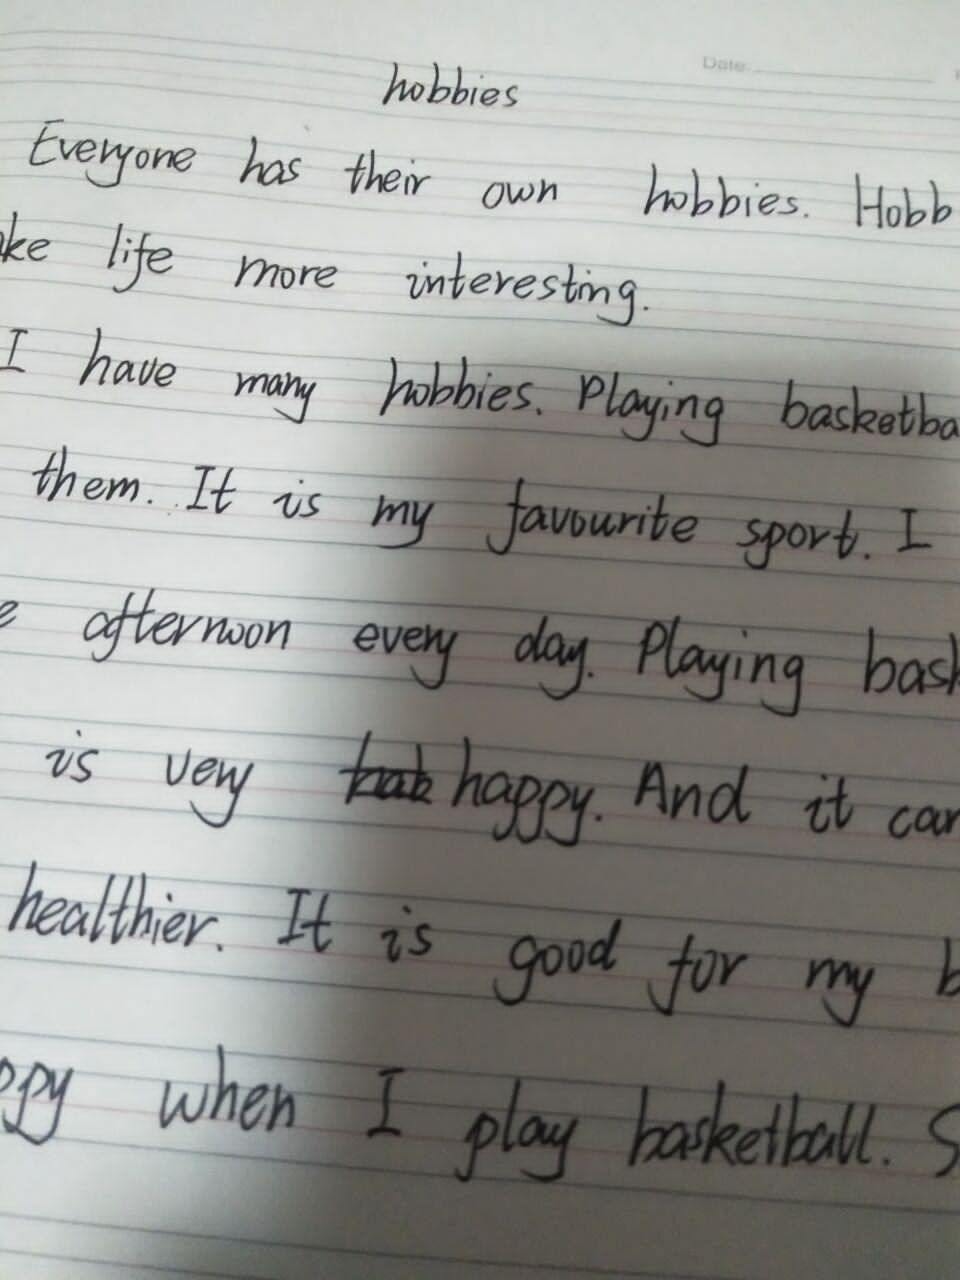 Date:
hobbies
Everyone has their own hobbies. Hobb
ke life more interesting.
I have many hobbies. Playing basketba
them. It is my favourite sport. I
e afternoon every day. Playing bask
is very happy. And it can
healthier. It is good for my b
ppy when I play basketball. S